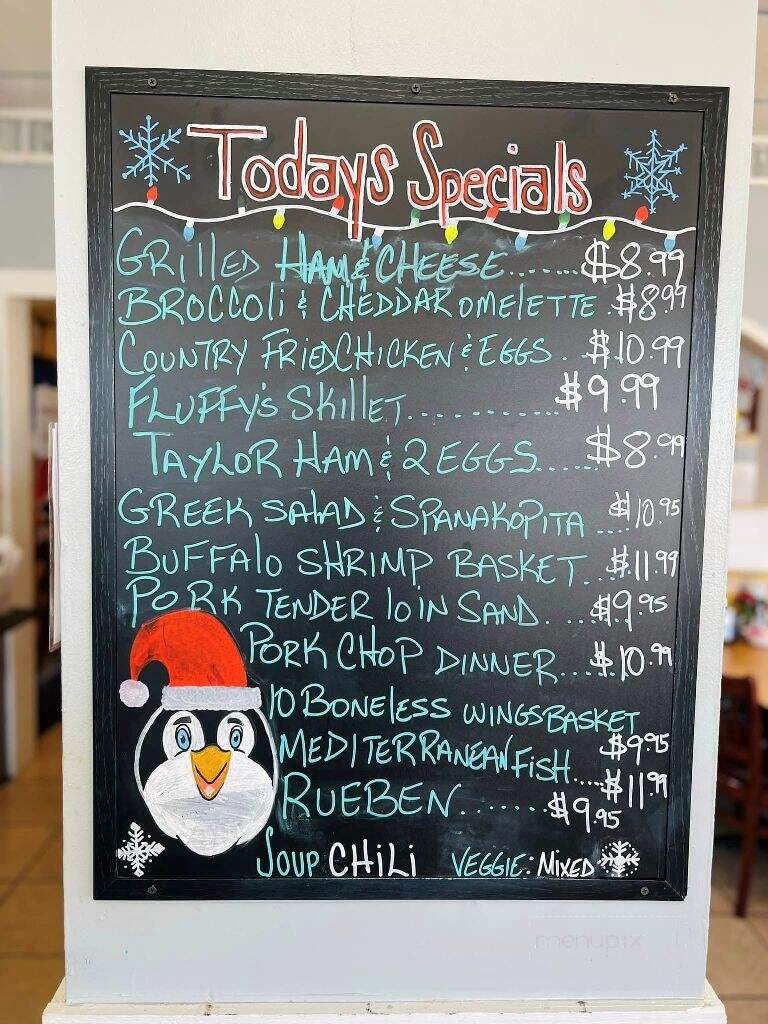 Todays Specials
GRillED HAM & CHEESE.......$8.99
BROCCOli & CHEDDAR OMELETTE .$8.99
COUNTRY FRIED CHICKEN & EGGS . .$10.99
FLUFFY'S SKillET..............$9.99
TAYLOR HAM & 2 EGGS.....$8.99
GREEK SALAD & SPANAKOPITA ....$10.95
BUFFAlO SHRIMP BASKET....$11.99
PORK TENDER lOIN SAND. ....$9.95
PORK CHOP DINNER.....$10.99
10 BONELESS WINGS BASKET
$9.95
MEDITERRANEAN FISH....$11.99
RUEBEN.......$9.95
SOUP CHiLi VEGGIE: MIXED
menupix